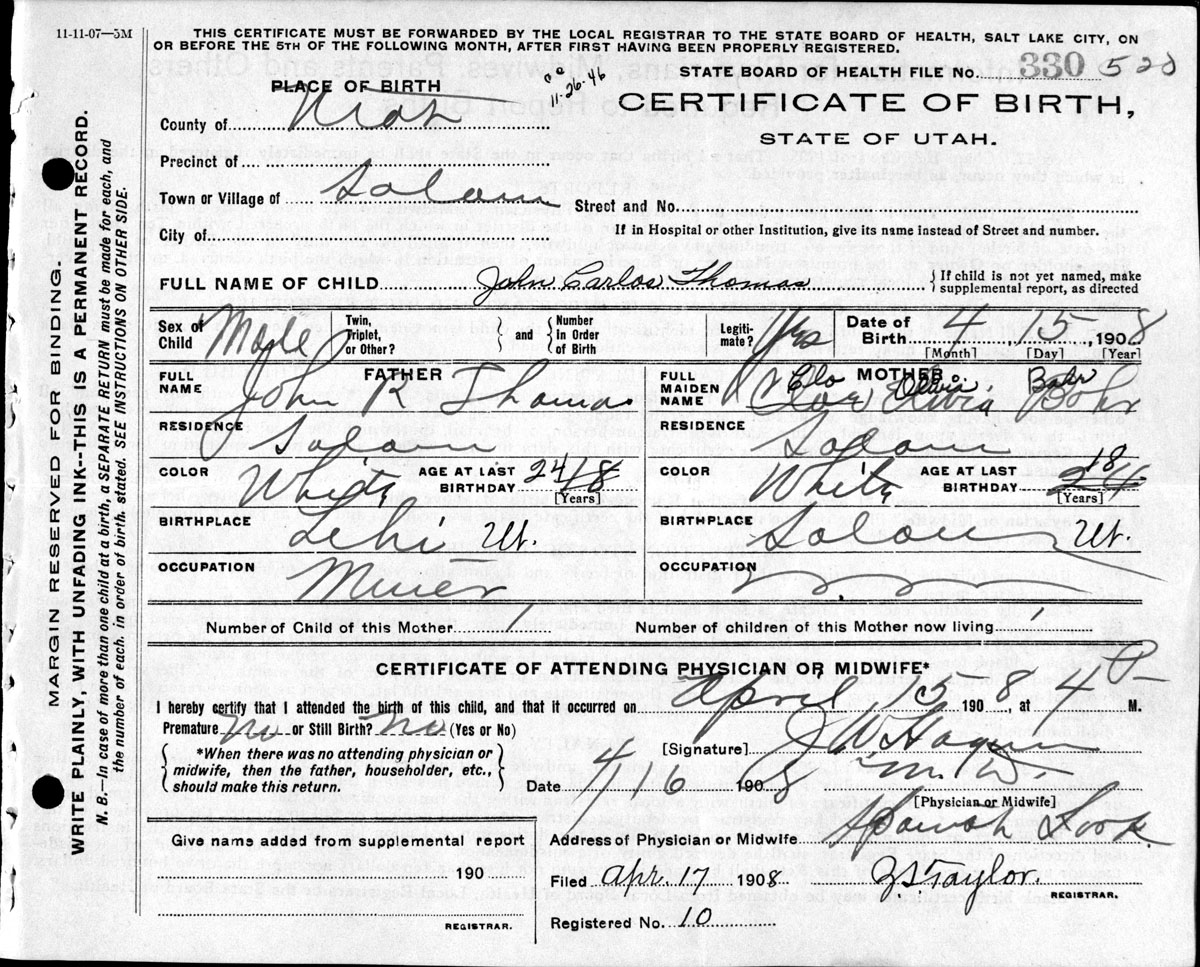 11-11-07—5M
THIS CERTIFICATE MUST BE FORWARDED BY THE LOCAL REGISTRAR TO THE STATE BOARD OF HEALTH, SALT LAKE CITY, ON
OR BEFORE THE 5TH OF THE FOLLOWING MONTH, AFTER FIRST HAVING BEEN PROPERLY REGISTERED.
STATE BOARD OF HEALTH FILE No. 330 520
11-26-46
PLACE OF BIRTH
CERTIFICATE OF BIRTH,
STATE OF UTAH.
County of Utah
Precinct of
Town or Village of Salem Street and No.
City of If in Hospital or other Institution, give its name instead of Street and number.
FULL NAME OF CHILD John Carlos Thomas { If child is not yet named, make
supplemental report, as directed
Sex of Child Male Twin, Triplet, or Other? } and { Number In Order of Birth Legiti- mate? Yes Date of Birth 4 15, 1908
[Month] [Day] [Year]
FATHER MOTHER
FULL NAME John R Thomas FULL MAIDEN NAME Clo Olivia Bohr
RESIDENCE Salem RESIDENCE Salem
COLOR White AGE AT LAST BIRTHDAY 24 18 COLOR White AGE AT LAST BIRTHDAY 18 24
[Years] [Years]
BIRTHPLACE Lehi Ut. BIRTHPLACE Salem Ut.
OCCUPATION Miner OCCUPATION
Number of Child of this Mother 1 Number of children of this Mother now living 1
CERTIFICATE OF ATTENDING PHYSICIAN OR MIDWIFE*
I hereby certify that I attended the birth of this child, and that it occurred on April, 15 1908, at 4 P M.
Premature No or Still Birth? No (Yes or No)
*When there was no attending physician or
midwife, then the father, householder, etc.,
should make this return.
[Signature] J W Hagan
M.D.
Date 4/16 1908
[Physician or Midwife]
Give name added from supplemental report
190
REGISTRAR.
Address of Physician or Midwife Spanish Fork
Filed Apr. 17 1908. Z S Taylor.
REGISTRAR.
Registered No. 10
MARGIN RESERVED FOR BINDING
WRITE PLAINLY, WITH UNFADING INK--THIS IS A PERMANENT RECORD.
N. B.—In case of more than one child at a birth, a SEPARATE RETURN must be made for each, and
the number of each, in order of birth, stated. SEE INSTRUCTIONS ON OTHER SIDE.